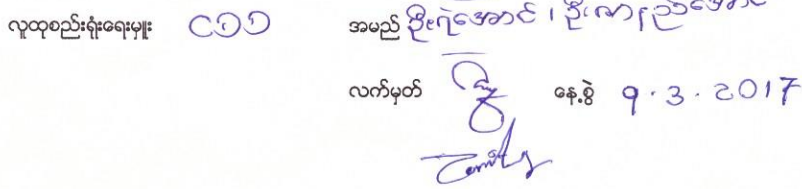 လူထုစည်းရုံးရေးမှူး ငတတ အမည် ဦးရဲအောင် ၊ ဦးဇာနည်အောင်
လက်မှတ် နေ့စွဲ ၇.3.2017